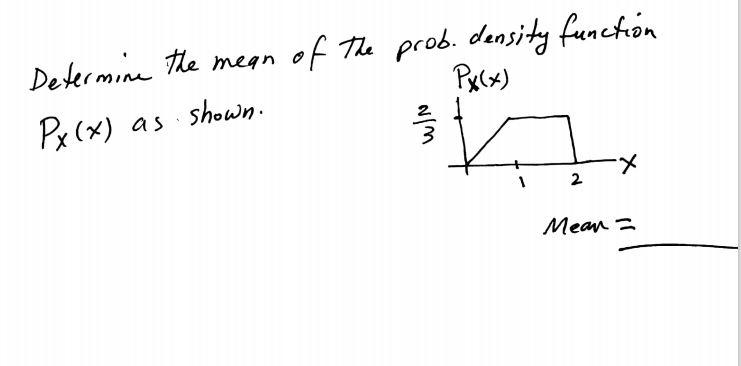 Determine the mean of the prob. density function
Px(x) as shown.
Px(x)
2/3
x
1
2
Mean =